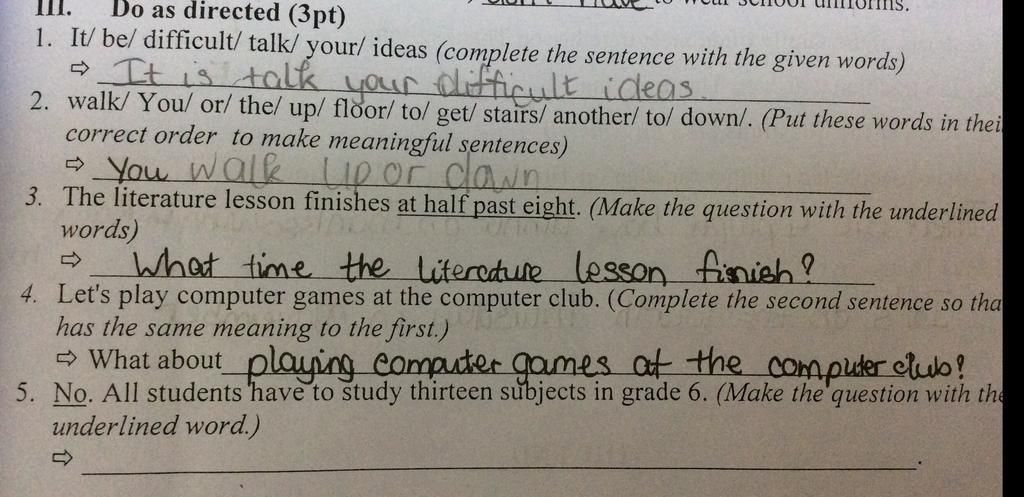 to wear school uniforms.
III. Do as directed (3pt)
1. It/ be/ difficult/ talk/ your/ ideas (complete the sentence with the given words)
⇨ It is talk your difficult ideas.
2. walk/ You/ or/ the/ up/ floor/ to/ get/ stairs/ another/ to/ down/. (Put these words in thei
correct order to make meaningful sentences)
⇨ You walk up or down
3. The literature lesson finishes at half past eight. (Make the question with the underlined
words)
⇨ What time the literature lesson finish?
4. Let's play computer games at the computer club. (Complete the second sentence so tha
has the same meaning to the first.)
⇨ What about playing computer games at the computer club?
5. No. All students have to study thirteen subjects in grade 6. (Make the question with the
underlined word.)
⇨